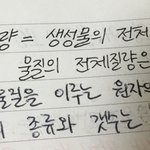 량 = 생성물의 전체
물질의 전체질량은
물질은 이루는 원자의
종류와 갯수는